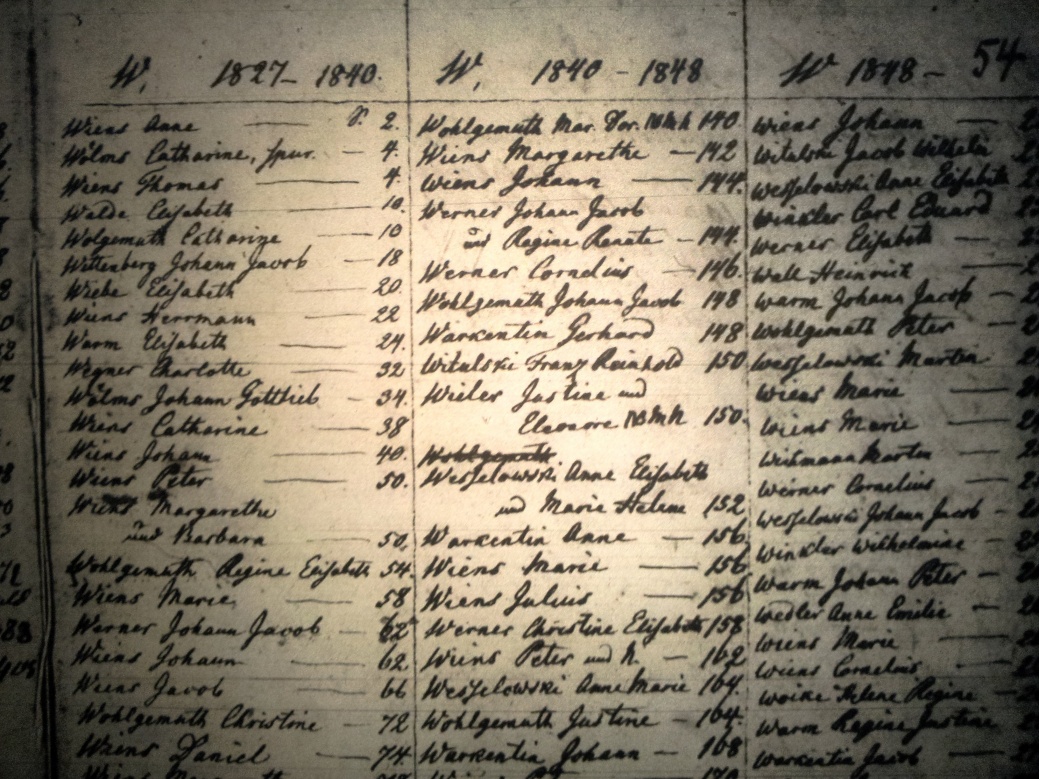 54
W, 1827 - 1840.
Wiens Anne — P. 2.
Wölms Catharine, spur. — 4.
Wiens Thomas — 4.
Walde Elisabeth — 10.
Wolgemuth Catharine — 10
Wittenberg Johann Jacob — 18
Wiebe Elisabeth — 20.
Wiens Herrmann — 22
Warm Elisabeth — 24.
Wegner Charlotte — 32
Wölms Johann Gottlieb — 34.
Wiens Catharine — 38
Wiens Johann — 40.
Wiens Peter — 50.
Wiens Margarethe
und Barbara — 50.
Wohlgemuth Regine Elisabeth 54.
Wiens Marie — 58
Werner Johann Jacob — 62
Wiens Johann — 62.
Wiens Jacob — 66
Wohlgemuth Christine — 72
Wiens Daniel — 74.
W, 1840 - 1848
Wohlgemuth Mar. Dor. 140
Wiens Margarethe — 142
Wiens Johann — 144.
Werner Johann Jacob
und Regine Renate — 144.
Werner Cornelius — 146.
Wohlgemuth Johann Jacob 148
Warkentin Gerhard 148
Witulski Franz Reinhold 150
Wieler Justine und
Eleonore 150.
Wohlgemuth
Wesselowski Anne Elisabeth
und Marie Helene 152
Warkentin Anne — 156.
Wiens Marie — 156
Wiens Julius — 156
Werner Christine Elisabeth 158
Wiens Peter und N. — 162
Wesselowski Anne Marie 164.
Wohlgemuth Justine — 164.
Warkentin Johann — 168
W 1848 -
Wiens Johann —
Witulski Jacob Wilhelm
Wesselowski Anne Elisabeth
Winkler Carl Eduard
Werner Elisabeth
Wall Heinrich —
Warm Johann Jacob —
Wohlgemuth Peter —
Wesselowski Martin
Wiens Marie —
Wiens Marie —
Martin
Werner Cornelius —
Wesselowski Johann Jacob —
Winkler Wilhelmine —
Warm Johann Peter —
Wedler Anne Emilie —
Wiens Marie —
Wiens Cornelius —
Helene Regine —
Warm Regine Justine
Warkentin Jacob —